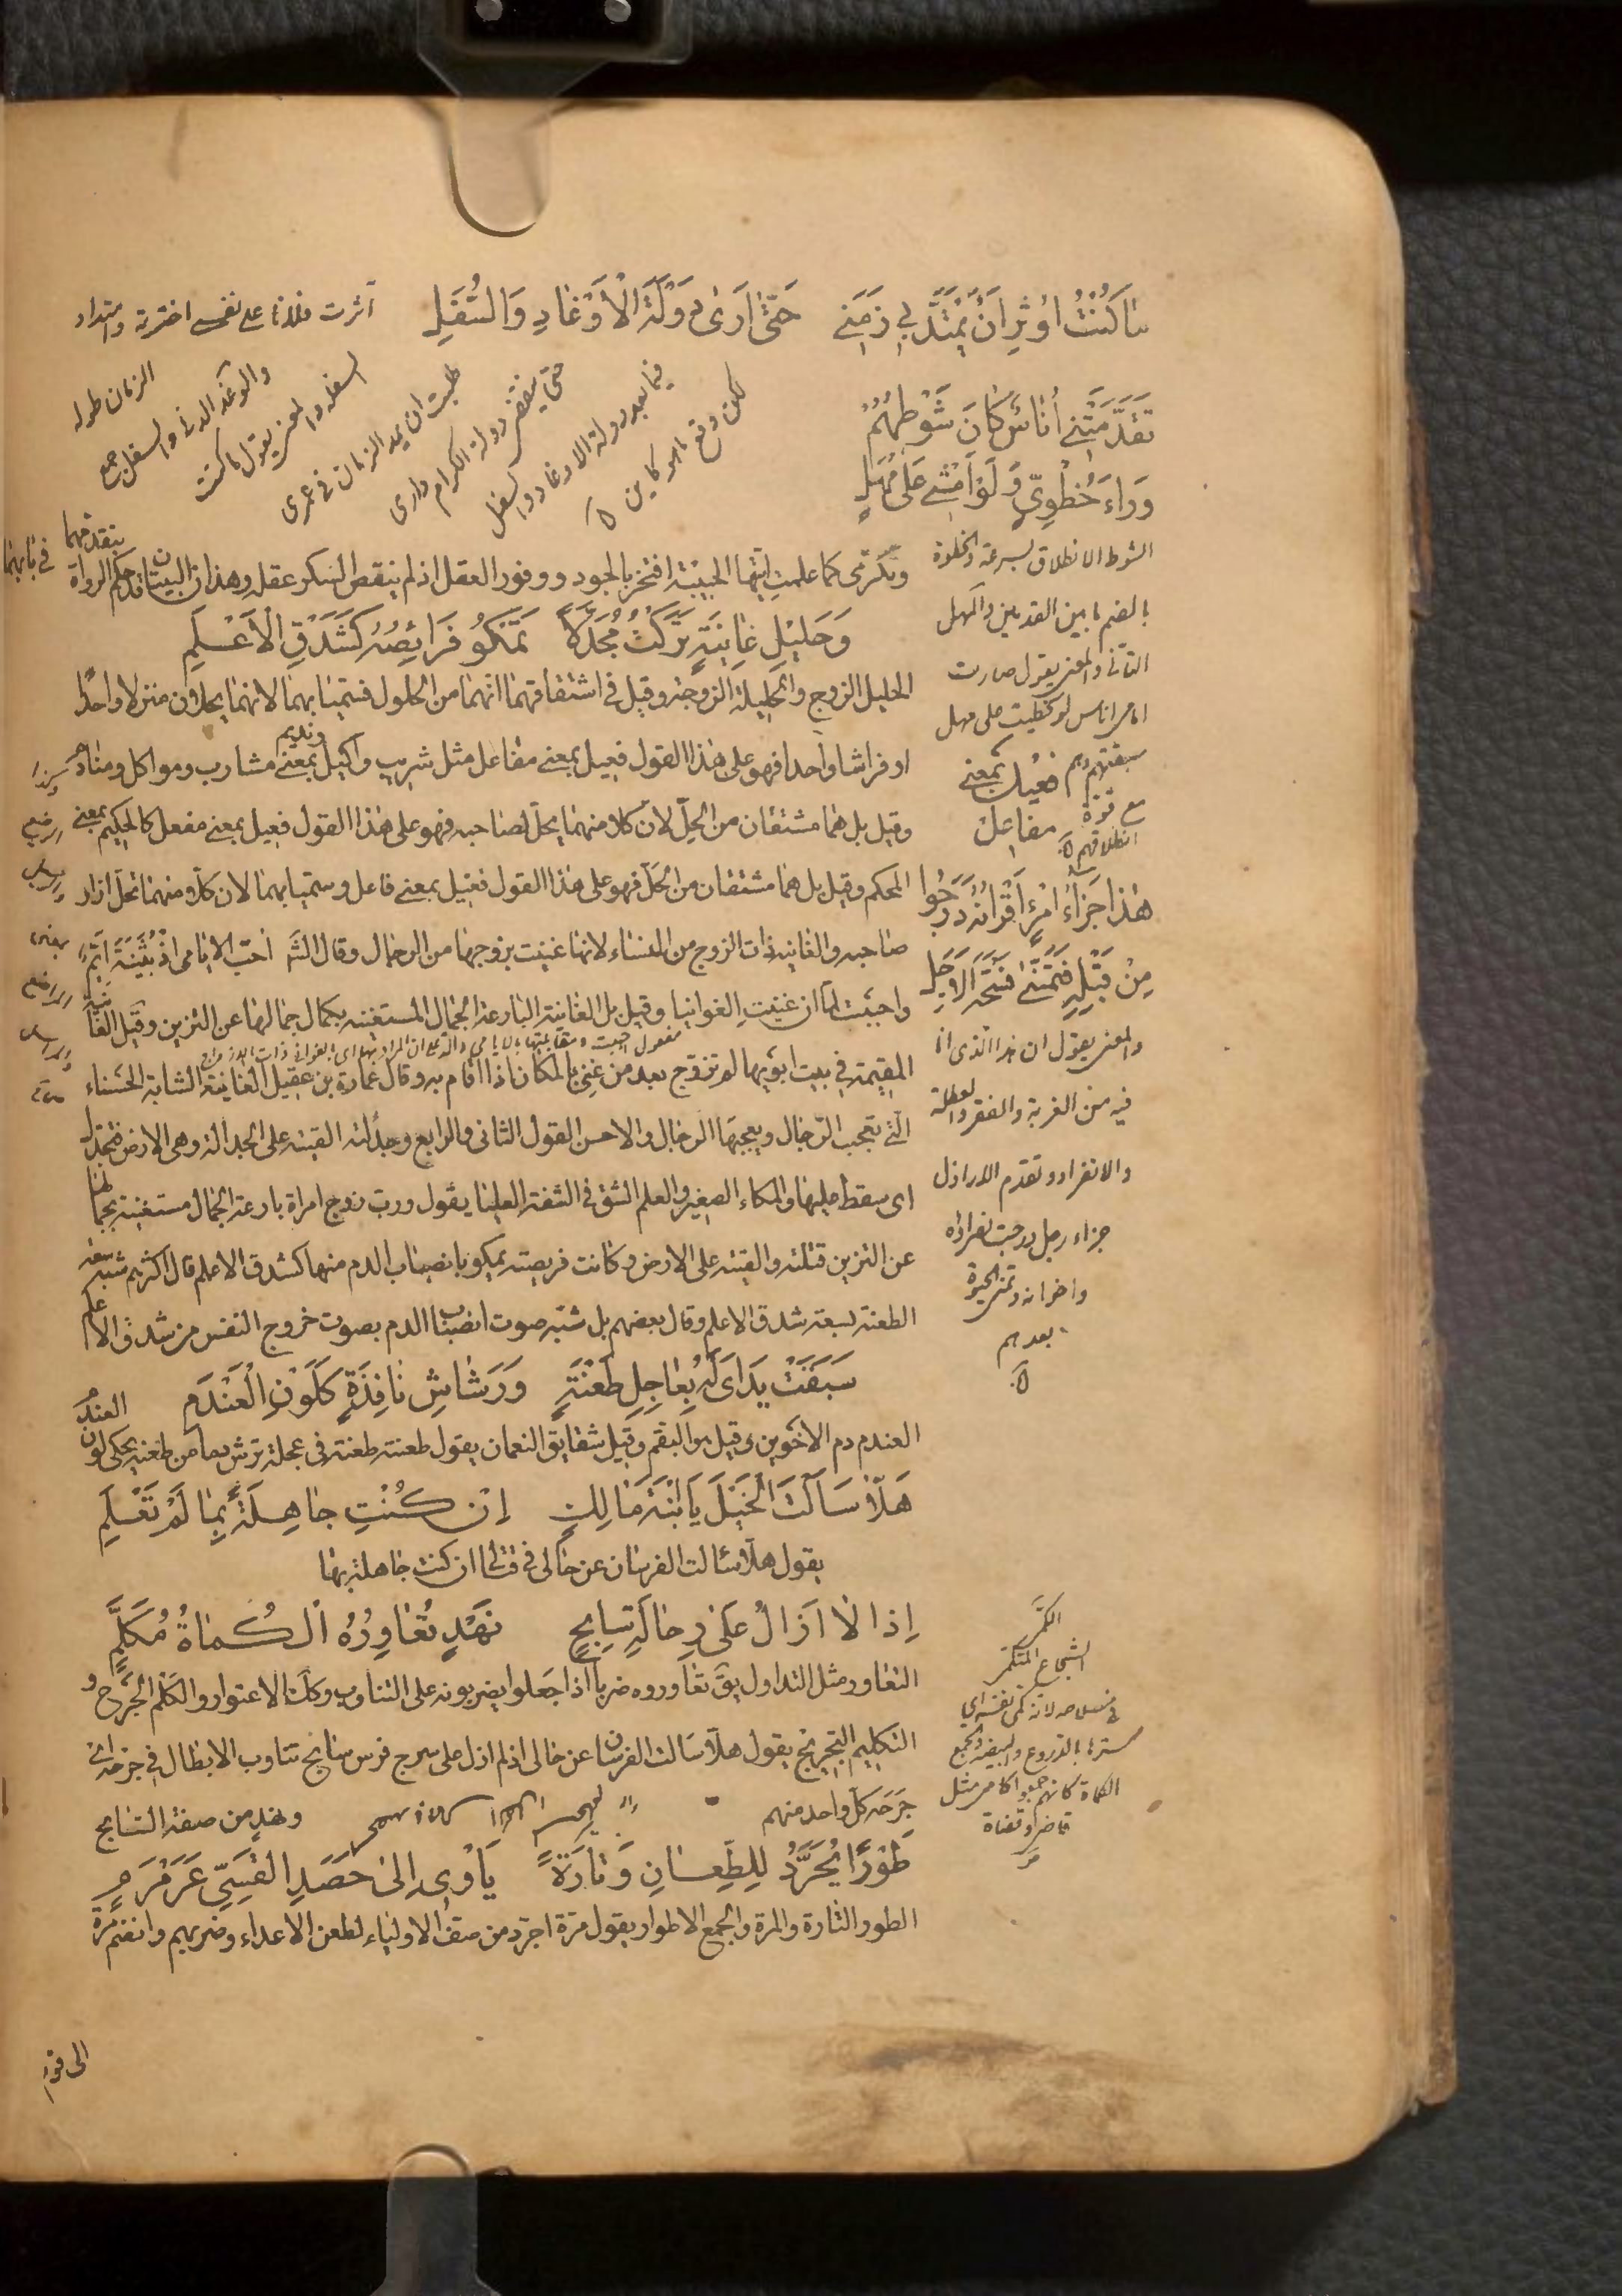 ما كُنْتُ اُوثِرُ اَنْ يَمْتَدَّ بِي زَمَنِي حَتّىٰ اَرىٰ دَوْلَةَ الْاَوْغَادِ وَالسَّفَلِ
آثرت فلانا على نفسى اخترته وامتداد
الزمان طوله
والوغد الدنى والسفل جمع
السفله والمعنى يقول ما كنت
طلبت ان يمد الزمان فى عمرى
حتى ينقضى دولة الكرام وارى
فيما بعد دولة الاوغاد والسفل
لكن وقع ما هو كاين
تَقَدَّمَتْنِي اُنَاسٌ كَانَ شَوْطُهُمُ
وَرَاءَ خُطْوِي وَلَوْ اَمْشِي عَلىٰ مَهَلِ
الشوط الانطلاق بسرعة والخطوة
بالضم ما بين القدمين والمهل
التأنى والمعنى يقول صارت
امامى اناس لو خطيت على مهل
سبقتهم وهم
مع قوة
انطلاقهم
فعيل بمعنى
مفاعل
هٰذا جَزَاءُ امْرِءٍ اَقْرَانُهُ دَرَجُوا
مِنْ قَبْلِهِ فَتَمَنّىٰ فُسْحَةَ الْاَجَلِ
والمعنى يقول ان هذا الذى انا
فيه من الغربة والفقر والعطلة
والانفراد وتقدم الاراذل
جزاء رجل درجت نظراؤه
واخوانه وتمنى الحيوة
بعدهم
وتكرمى كما علمتِ ايتها الحبيبة افتخر بالجود ووفور العقل اذ لم ينقص السكر عقله وهذان البيتان قد حكم الرواة
بتقدمهما
فى بابهما
وَحَلِيلِ غانِيَةٍ تَرَكْتُ مُجَدَّلًا تَمْكُو فَرائِصُهُ كَشَدْقِ الْاَعْلَمِ
الحليل الزوج والحليلة الزوجة وقيل فى اشتقاقهما انهما من الحلول فسميا بهما لانهما يحلان منزلا واحدا
او فراشا واحدا فهو على هذا القول فعيل بمعنى مفاعل مثل شريب واكيل ونديم بمعنى مشارب ومواكل ومنادم
وقيل بل هما مشتقان من الحِلّ لان كلا منهما يحل لصاحبه فهو على هذا القول فعيل بمعنى مفعل كالحكيم بمعنى
المحكم وقيل بل هما مشتقان من الحَلّ فهو على هذا القول فعيل بمعنى فاعل وسميا بهما لان كلا منهما تحل ازار
صاحبه والغانيه ذات الزوج من النساء لانها غنيت بزوجها من الرجال وقال الش احب الايامى اذ بُثَيْنَةُ اَيِّمٌ
واحببت لما ان غنيتِ الغوانيا وقيل بل الغانية البارعة الجمال المستغنيه بكمال جمالها عن التزين وقيل الغانية
المقيمة فى بيت ابويها لم تزوج بعد من غنى بالمكان اذا اقام به وقال عمارة بن عقيل الغانية الشابة الحسناء
التى تعجب الرجال ويعجبها الرجال والاحسن القول الثانى والرابع وجدلته القيته على الجدالة وهى الارض فتجدل
اى سقط عليها والمكاء الصفير والعلم الشق فى الشفة العليا يقول ورب زوج امراة بارعة الجمال مستغنية بجمالها
عن التزين قتلته والقيته على الارض وكانت فريصته يمكو بانصباب الدم منها كشدق الاعلم قال اكثرهم شبه سعة
الطعنة بسعة شدق الاعلم وقال بعضهم بل شبه صوت انصباب الدم بصوت خروج النفس من شدق الاعلم
سَبَقَتْ يَدايَ لَهُ بِعاجِلِ طَعْنَةٍ وَرَشاشِ نافِذَةٍ كَلَوْنِ الْعَنْدَمِ
العندم دم الاخوين وقيل هو البقم وقيل شقايق النعمان يقول طعنته طعنة فى عجلة ترش دما من طعنة يحكى لون العندم
هَلّا سَأَلْتِ الْخَيْلَ يَا ابْنَةَ مالِكٍ اِنْ كُنْتِ جاهِلَةً بِما لَمْ تَعْلَمِ
يقول هلا سئالت الفرسان عن حالى فى قتالى ان كنت جاهلة بها
اِذ لا اَزالُ عَلىٰ رِحالَةِ سابِحٍ نَهْدٍ تُعاوِرُهُ الْكُماةُ مُكَلَّمِ
التعاور مثل التداول يق تعاوروه ضربا اذا جعلوا يضربونه على التناوب وكذا الاعتوار والكلم الجرح و
التكليم التجريح يقول هلا سالت الفرسان عن حالى اذ لم ازل على سرج فرس سابح تناوب الابطال فى جرحه اى
جرحه كل واحد منهم
ونهد من صفة السابح
طَوْرًا يُجَرَّدُ لِلطِّعانِ وَتارَةً يَاْوِى اِلىٰ حَصَدِ القِسِيِّ عَرَمْرَمِ
الطور التارة والمرة والجمع الاطوار يقول مرة اجرد من صف الاولياء لطعن الاعداء وضربهم وانضم مرة
الكمى
الشجاع المتكمى
فى سلاحه لانه كمى نفسه اى
سترها بالدروع والبيضة والجمع
الكماة كانهم جمعوا كامى مثل
قاضى وقضاة
الى قوم